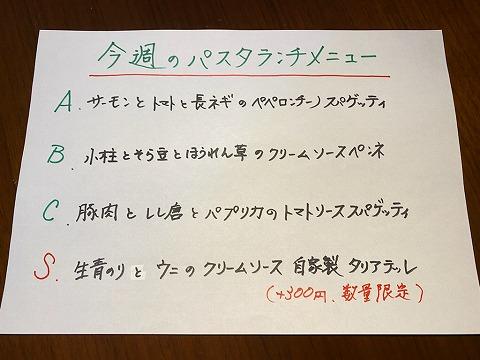 今週のパスタランチメニュー
A. サーモンとトマトと長ネギのペペロンチーノスパゲッティ
B. 小柱とそら豆とほうれん草のクリームソースペンネ
C. 豚肉としし唐とパプリカのトマトソーススパゲッティ
S. 生青のりとウニのクリームソース 自家製 タリアテッレ
(+300円、数量限定)